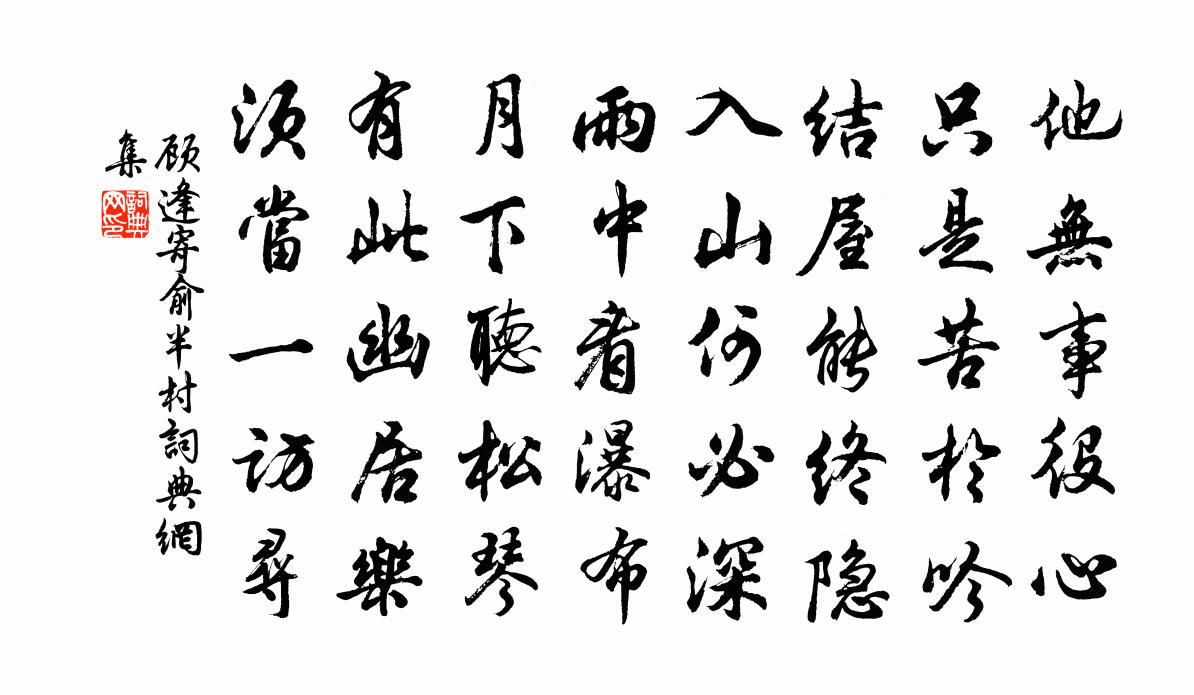 他無事役心
只是苦於吟
结屋能终隐
入山何必深
雨中看瀑布
月下聽松琴
有此幽居樂
須當一訪尋
顾逢寄俞半村詞典網
集
詞典
网印